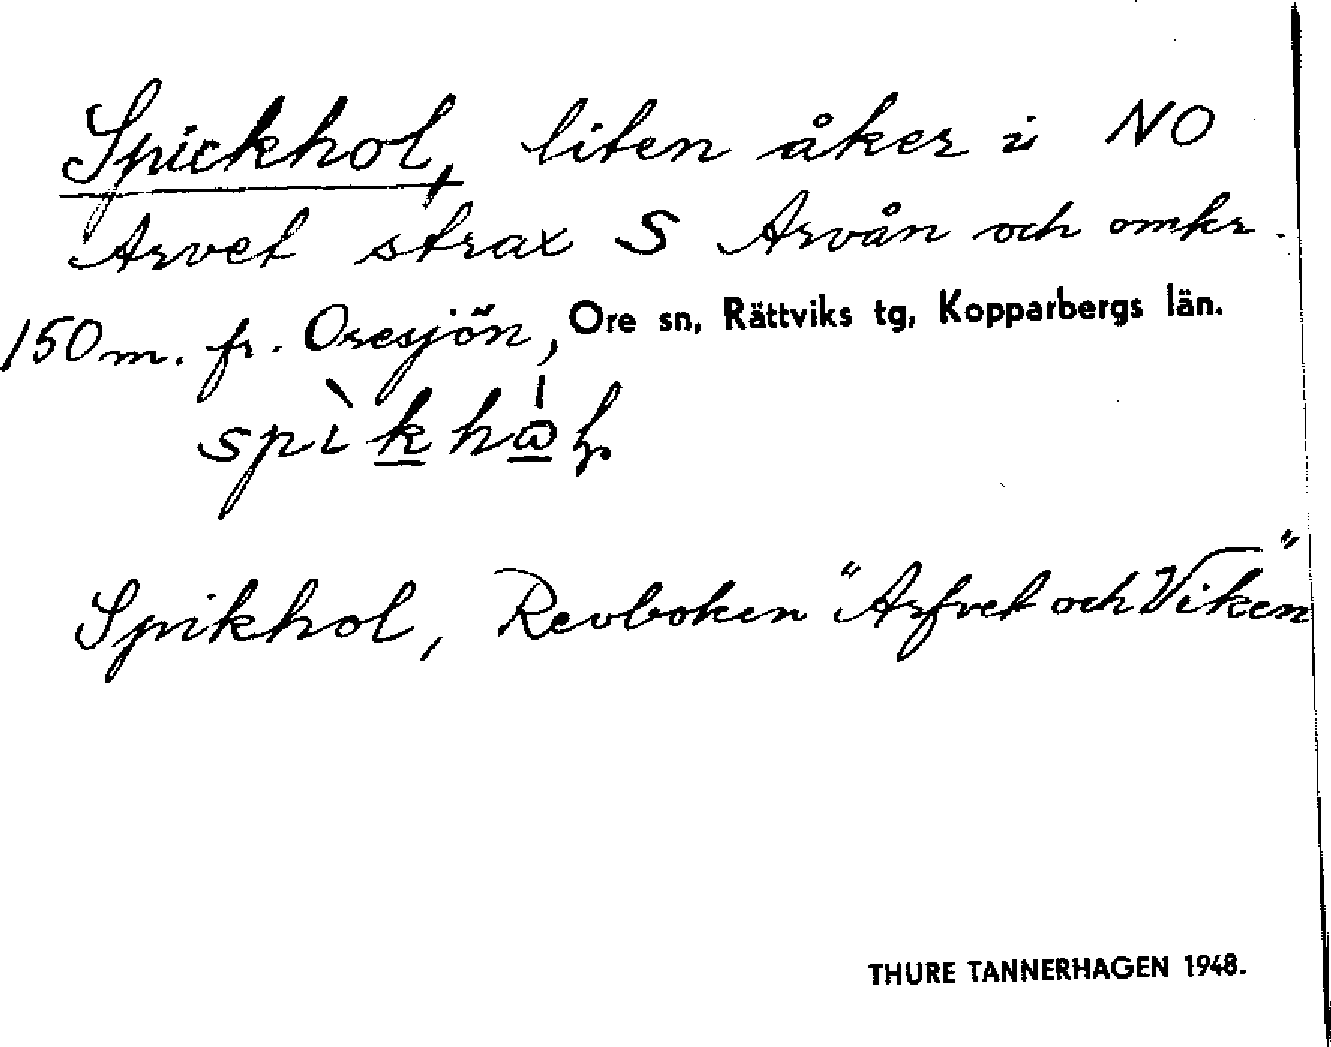 Spickhol, liten åker i NO
Arvet strax S Arvån och omkr.
150 m. fr. Oresjön, Ore sn, Rättviks tg, Kopparbergs län.
Spikhol, Revboken "Arfvet och Viken"
THURE TANNERHAGEN 1948.